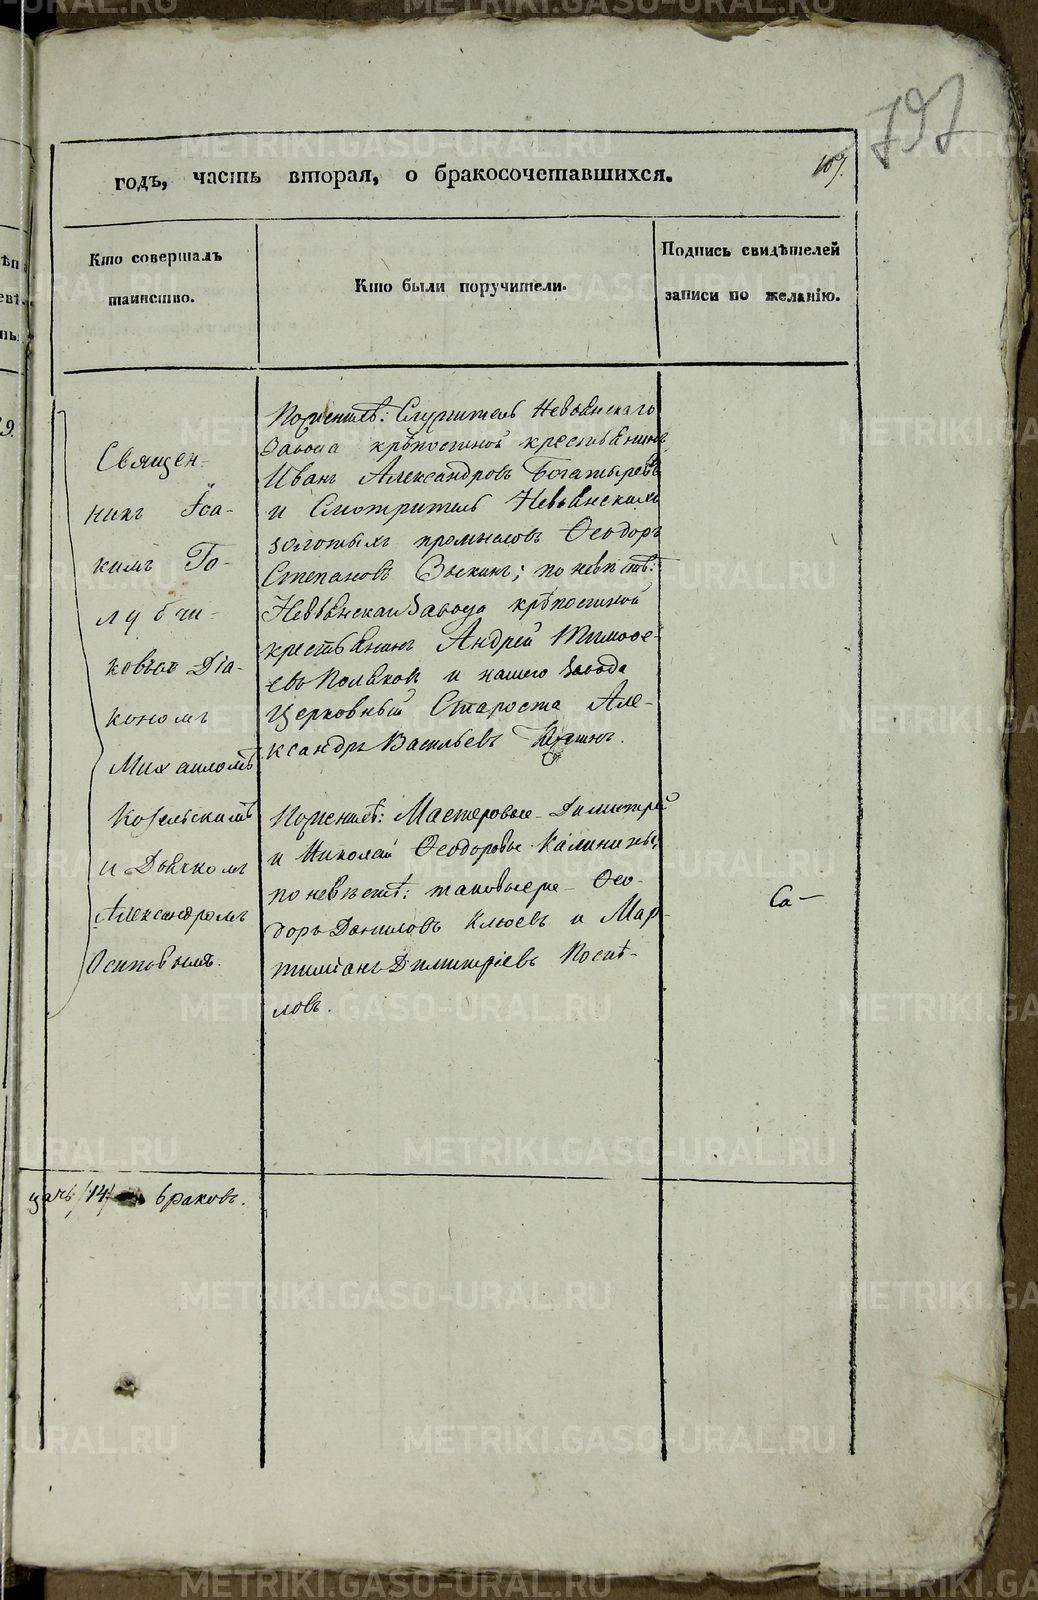 797
107.
годъ, часть вторая, о бракосочетавшихся.
Кто совершалъ
таинство.
Кто были поручители.
Подпись свидѣтелей
записи по желанію.
Священ-
никъ Іоа-
кимъ Го-
лубчи-
ковъ съ Діа-
кономъ
Михаиломъ
Козельскимъ
и Дьячкомъ
Александромъ
Осиповымъ.
По женихѣ: Служитель Невьянскаго
Завода крѣпостной крестьянинъ
Иванъ Александровъ Богатыревъ
и Смотритель Невьянскихъ
золотыхъ промысловъ Ѳеодоръ
Степановъ; по невѣстѣ:
Невьянскаго Завода крѣпостной
крестьянинъ Андрей Тимоѳе-
евъ Поляковъ и нашего Завода
Церковный Староста Але-
ксандръ Васильевъ
По женихѣ: Мастеровые Димитрій
и Николай Ѳеодоровы Калинины,
по невѣстѣ: таковые же Ѳео-
доръ Даниловъ Клюевъ и Мар-
тиміанъ Димитріевъ Поспѣ-
ловъ.
Са-
цать /14/ браковъ.
METRIKI.GASO-URAL.RU